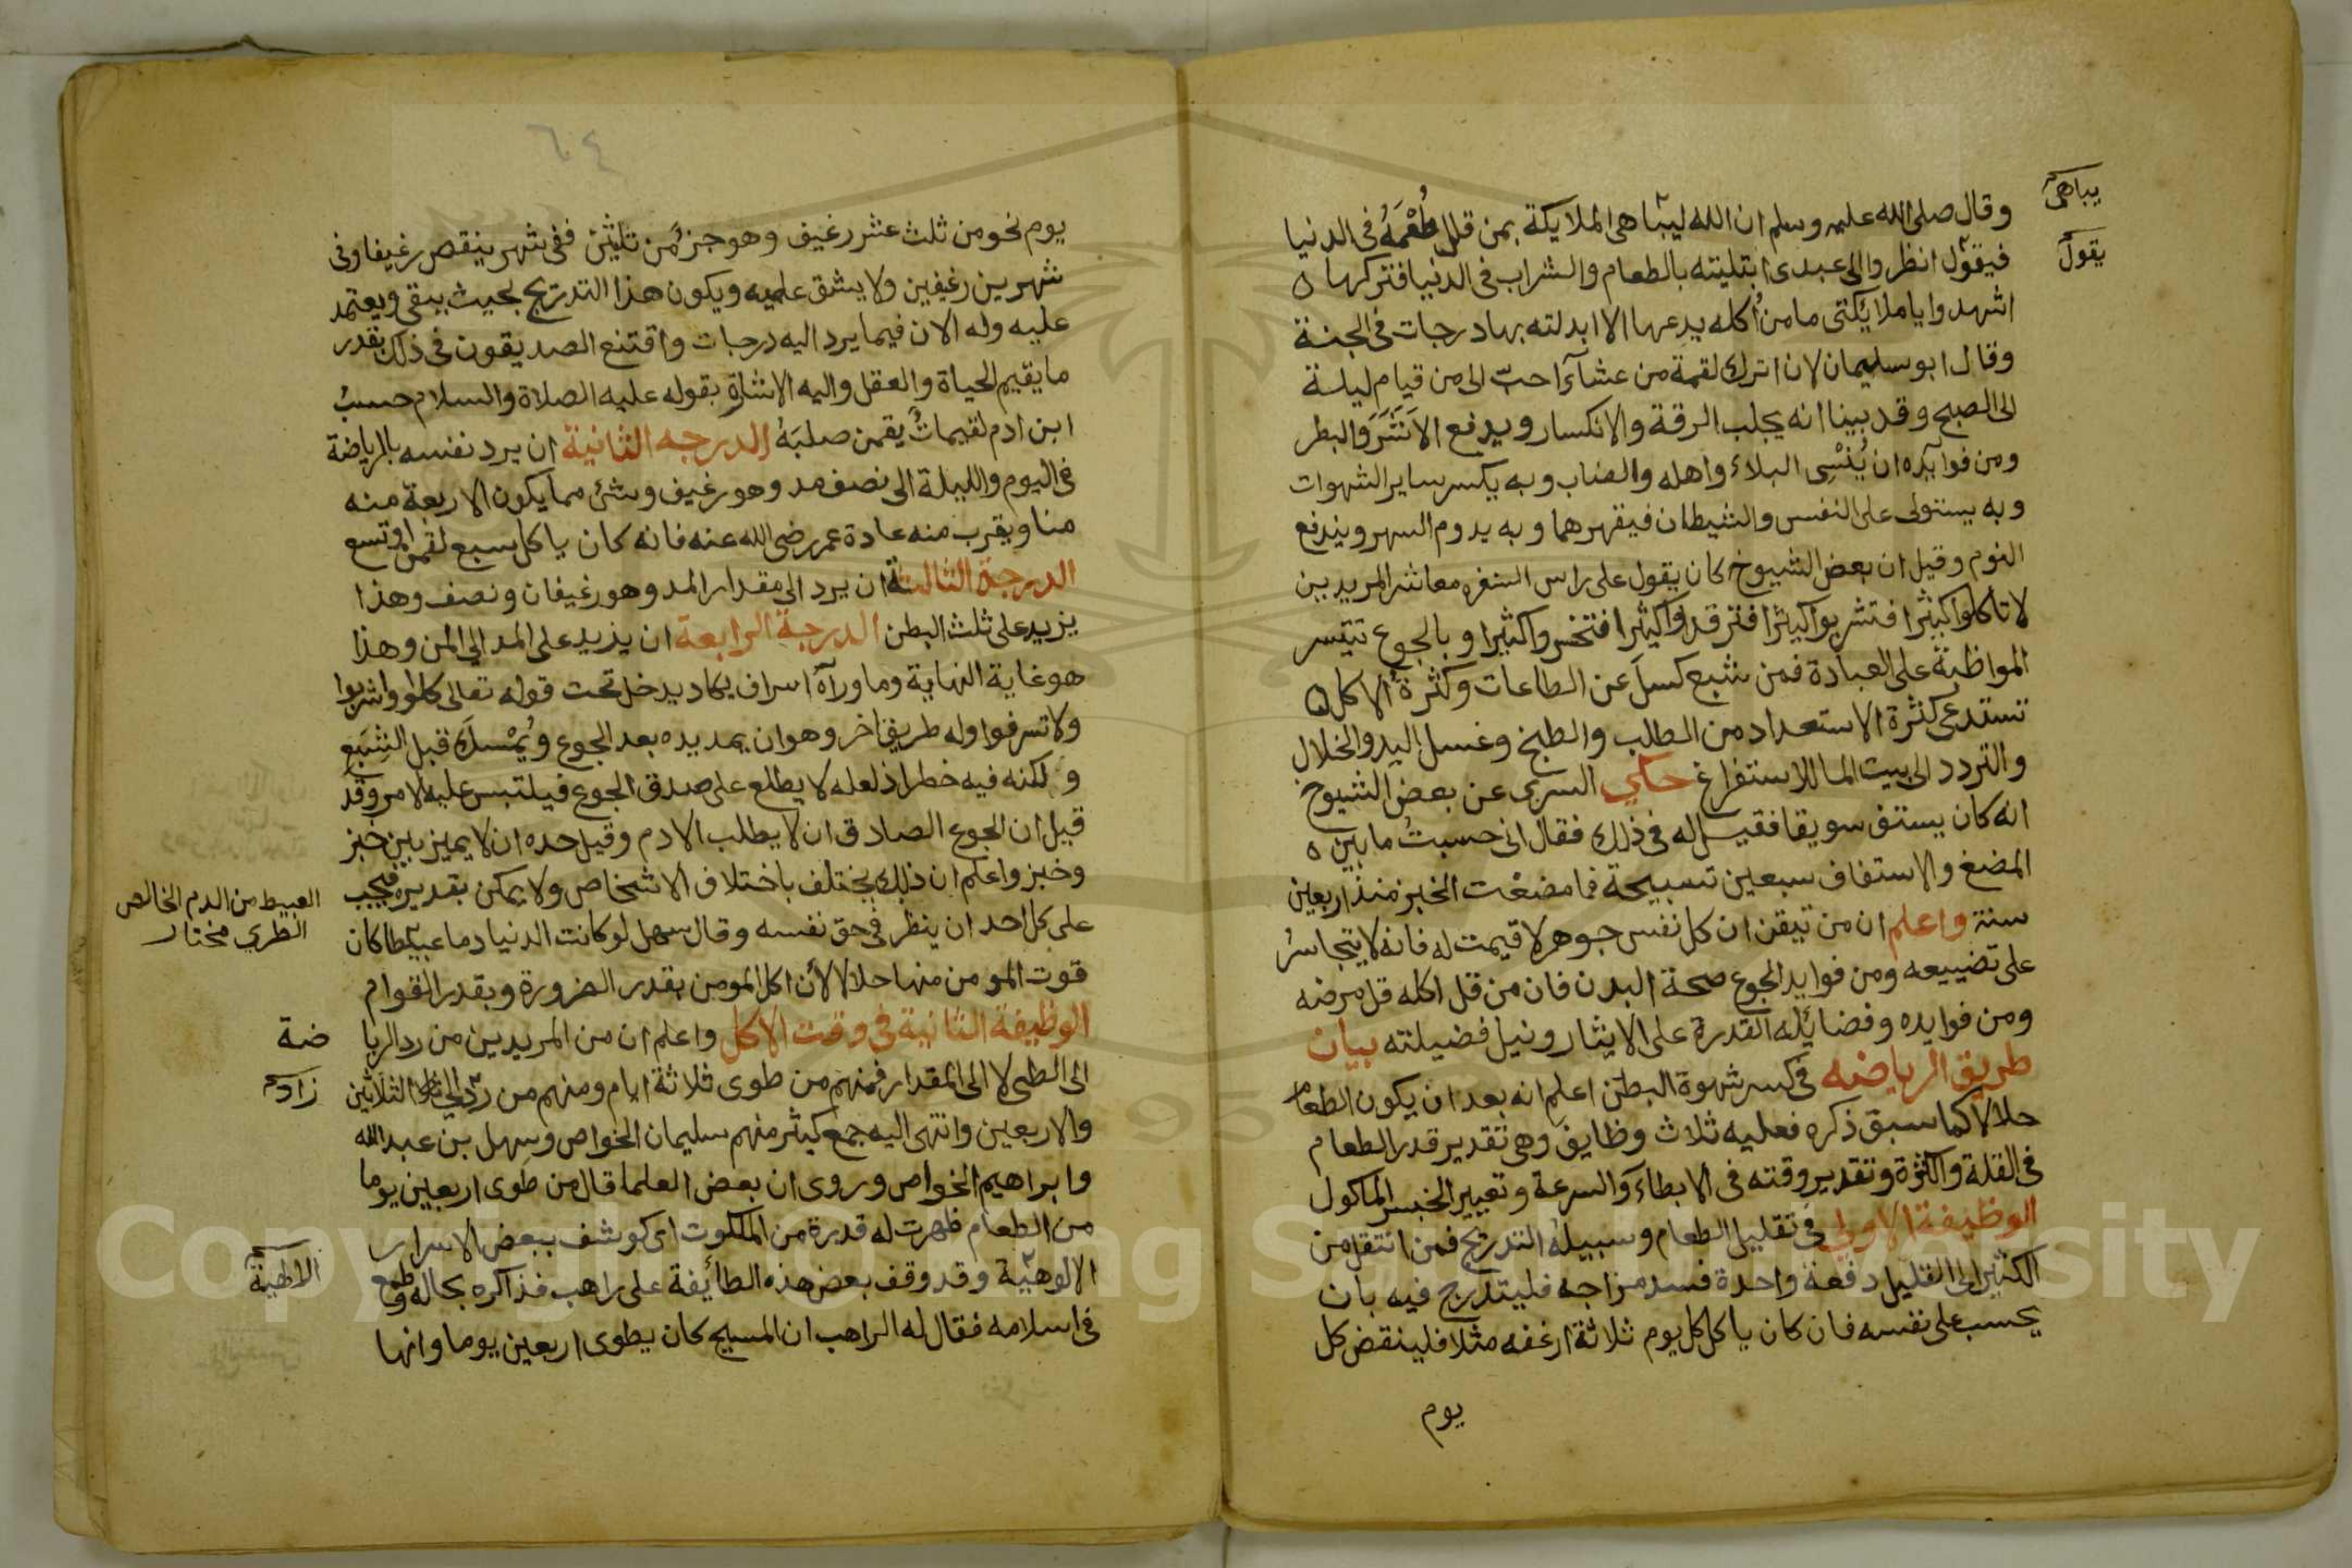 يباهى
يقول
وقال صلى الله عليه وسلم ان الله ليباهى الملايكة بمن قلل طُعْمَهُ فى الدنيا
فيقول انظروا الى عبدى ابتليته بالطعام والشراب فى الدنيا فتركها ه
اشهدوا ياملائكتى ما من أكله يدعها الا ابدلته بها درجات فى الجنة
وقال ابو سليمان لان اترك لقمة من عشآء احبّ الى من قيام ليلة
الى الصبح وقد بينا انه يجلب الرقة والانكسار ويدفع الاشَرَ والبطر
ومن فوايده ان يُنْسِى البلاء واهله والعذاب وبه يكسر ساير الشهوات
وبه يستولى على النفس والشيطان فيقهرهما وبه يدوم السهر ويندفع
النوم وقيل ان بعض الشيوخ كان يقول على راس السفره معاشر المريدين
لا تاكلوا كثيرا فتشربوا كثيرا فترقدوا كثيرا فتخسروا كثيرا وبالجوع تتيسر
المواظبة على العبادة فمن شبع كسلَ عن الطاعات وكثرة الاكل ه
تستدعى كثرة الاستعداد من الطلب والطبخ وغسل اليد والخلال
والتردد الى بيت الما للاستفراغ حكى السرى عن بعض الشيوخ
انه كان يستف سويقا فقيل له فى ذلك فقال انى حسبتُ ما بين ه
المضغ والاستفاف سبعين تسبيحة فما مضغت الخبز منذ اربعين
سنة واعلم ان من تيقن ان كل نفس جوهر لا قيمت له فانه لا يتجاسرُ
على تضييعه ومن فوايد الجوع صحة البدن فان من قل اكله قل مرضه
ومن فوايده وفضائله القدرة على الايثار ونيل فضيلته بيان
طريق الرياضه فى كسر شهوة البطن اعلم انه بعد ان يكون الطعام
حلالا كما سبق ذكره فعليه ثلاث وظايف وهى تقدير قدر الطعام
فى القلة والكثرة وتقدير وقته فى الابطاء والسرعة وتعيير الجنس الماكول
الوظيفة الاولى فى تقليل الطعام وسبيله التدريج فمن انتقل من
الكثير الى القليل دفعة واحدة فسد مزاجه فليتدرج فيه بان
يحسب على نفسه فان كان ياكل كل يوم ثلاثة ارغفه مثلا فلينقص كل
يوم
٦٤
يوم نحو من ثلث عشر رغيف وهو جزء من ثلثين ففى شهر ينقص رغيفا وفى
شهرين رغيفين ولا يشق عليه ويكون هذا التدريج بحيث يبقى ويعتمد
عليه وله الان فيما يرد اليه درجات واقتنع الصديقون فى ذلك بقدر
ما يقيم الحياة والعقل واليه الاشارة بقوله عليه الصلاة والسلام حسبُ
ابن ادم لقيماتٌ يقمن صلبَهُ الدرجه الثانية ان يرد نفسه بالرياضة
فى اليوم والليلة الى نصف مد وهو رغيف وشئ مما يكون الاربعة منه
منا ويقرب منه عادة عمر رضى الله عنه فانه كان ياكل سبع لقم او تسع
الدرجة الثالثة ان يرد الى مقدار المد وهو رغيفان ونصف وهذا
يزيد على ثلث البطن الدرجة الرابعة ان يزيد على المد الى المن وهذا
هو غاية النهاية وما ورآه اسراف يكاد يدخل تحت قوله تعالى كلوا واشربوا
ولا تسرفوا وله طريق اخر وهو ان يمد يده بعد الجوع ويُمْسك قبل الشبَع
ولكنه فيه خطر اذ لعله لا يطلع على صدق الجوع فيلتبس عليه الامر وقد
قيل ان الجوع الصادق ان لا يطلب الادم وقيل حده ان لا يميز بين خبز
وخبز واعلم ان ذلك يختلف باختلاف الاشخاص ولا يمكن بقديره فيجب
على كل احد ان ينظر فى حق نفسه وقال سهل لو كانت الدنيا دما عبيطا كان
قوت المومن منها حلالا لأن اكل المومن بقدر الضرورة وبقدر القوام
الوظيفة الثانية فى وقت الاكل واعلم ان من المريدين من رد الريا
الى الطى لا الى المقدار فمنهم من طوى ثلاثة ايام ومنهم من ردّ الى الثلاثين
والاربعين وانتهى اليه جمع كثير منهم سليمان الخواص وسهل بن عبد الله
وابراهيم الخواص وروى ان بعض العلما قال من طوى اربعين يوما
من الطعام ظهرت له قدرة من الملكوت اى كوشف ببعض الاسرار
الالوهيّة وقد وقف بعض هذه الطائفة على راهب فذاكره بحاله وطمع
فى اسلامه فقال له الراهب ان المسيح كان يطوى اربعين يوما وانها
العبيط من الدم الخالص
الطري مختار
ضة
زاد
الالهية
Copyright © King Saud University